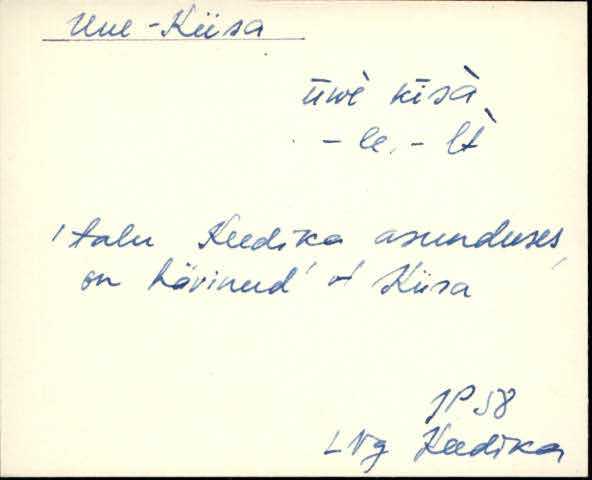 Uue-Kiisa
ūwè kīsà
-le, -lt
'talu Keedika asunduses,
on hävinud' vt Kiisa
JP 58
LNg Keedika